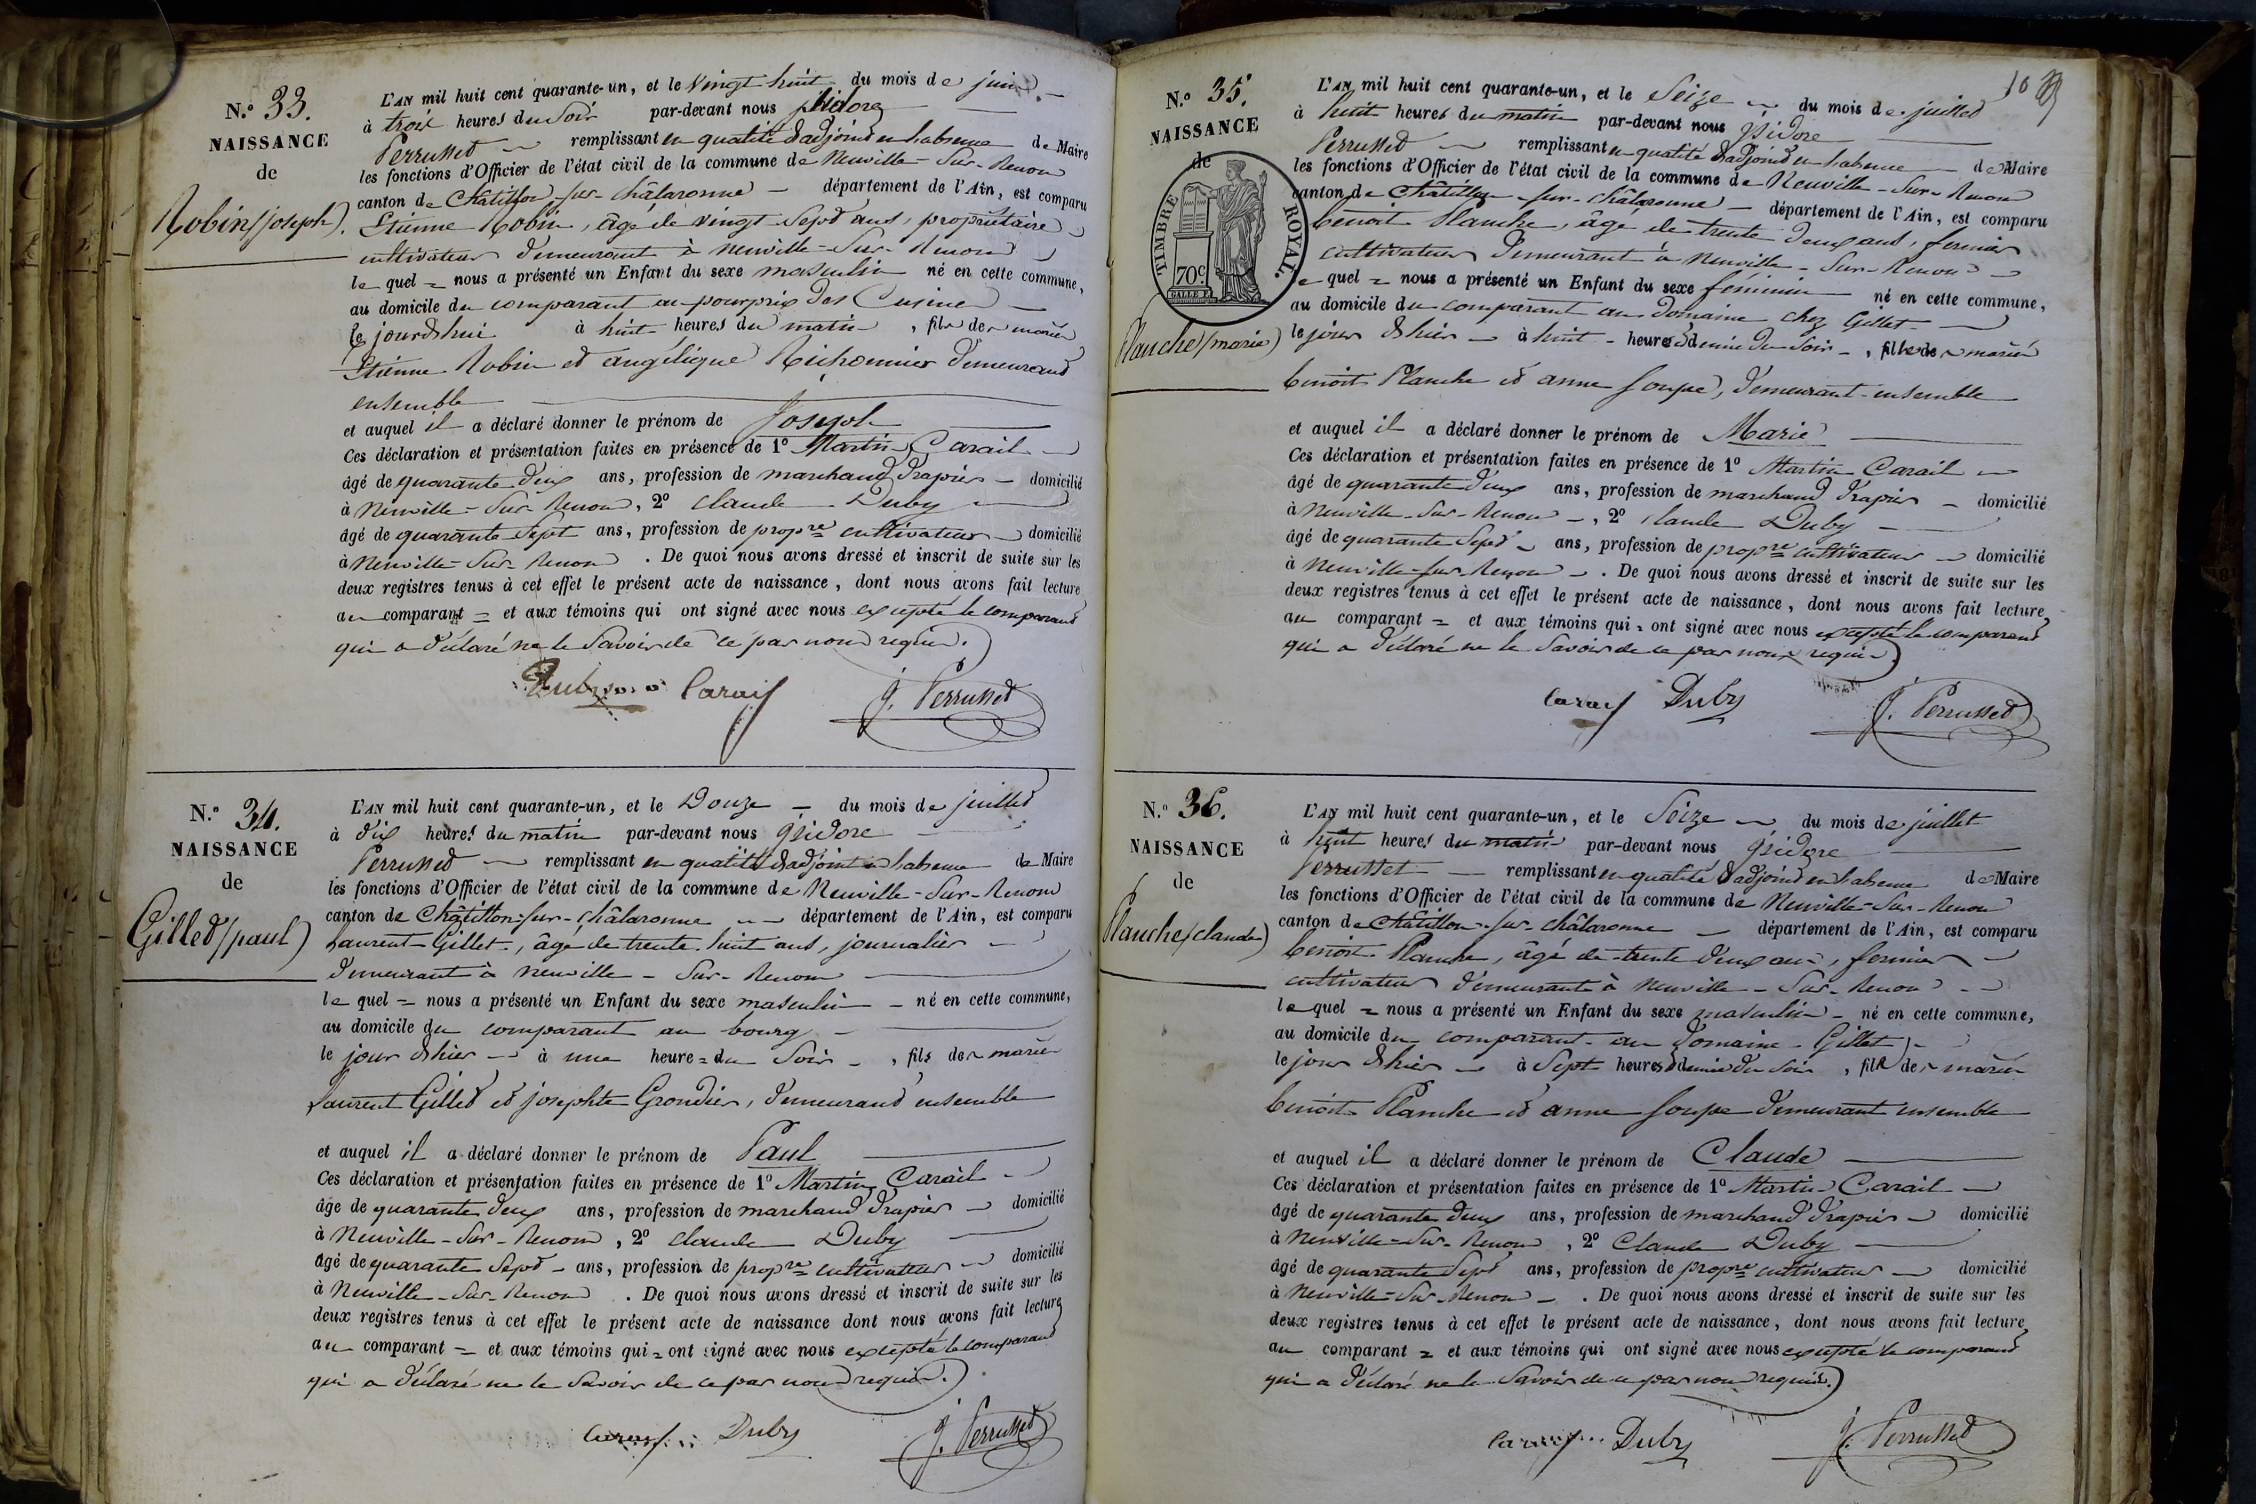 N.° 33.
NAISSANCE
de
Robin (joseph).
L'AN mil huit cent quarante-un, et le vingt huit du mois de juin
à trois heures du Soir par-devant nous Isidore
Perrusset remplissant en qualité d'adjoint en l'absence de Maire
les fonctions d'Officier de l'état civil de la commune de Neuville-Sur-Renon
canton de Châtillon sur-châlaronne département de l'Ain, est comparu
Etienne Robin, âgé de vingt-Sept ans, propriétaire
cultivateur demeurant à neuville-Sur-Renon
le quel nous a présenté un Enfant du sexe masculin né en cette commune,
au domicile du comparant au pourprix des Cusine
le jourd'hui à huit heures du matin, fils de mariés
Etienne Robin et angélique Richonnier demeurant
ensemble
et auquel il a déclaré donner le prénom de Joseph
Ces déclaration et présentation faites en présence de 1° Martin Carail
âgé de quarante deux ans, profession de marchand drapier domicilié
à Neuville-Sur-Renon, 2° claude Duby
âgé de quarante Sept ans, profession de propre cultivateur domicilié
à Neuville-Sur-Renon. De quoi nous avons dressé et inscrit de suite sur les
deux registres tenus à cet effet le présent acte de naissance, dont nous avons fait lecture
au comparant = et aux témoins qui ont signé avec nous excepté le comparant
qui a déclaré ne le Savoir de ce par nous requis.
Duby Carail J. Perrusset
N.° 34.
NAISSANCE
de
Gillet (paul)
L'AN mil huit cent quarante-un, et le Douze du mois de juillet
à dix heures du matin par-devant nous Isidore
Perrusset remplissant en qualité d'adjoint en l'absence de Maire
les fonctions d'Officier de l'état civil de la commune de Neuville-Sur-Renon
canton de Châtillon-sur-châlaronne département de l'Ain, est comparu
Laurent Gillet, âgé de trente huit ans, journalier
demeurant à neuville-Sur-Renon
le quel = nous a présenté un Enfant du sexe masculin né en cette commune,
au domicile du comparant au bourg
le jour d'hier à une heure = du Soir, fils de mariés
Laurent Gillet et josephte Grondier, demeurant ensemble
et auquel il a déclaré donner le prénom de Paul
Ces déclaration et présentation faites en présence de 1° Martin Carail
âge de quarante deux ans, profession de marchand drapier domicilié
à Neuville-Sur-Renon, 2° claude Duby
âgé de quarante Sept ans, profession de propre cultivateur domicilié
à Neuville-Sur-Renon. De quoi nous avons dressé et inscrit de suite sur les
deux registres tenus à cet effet le présent acte de naissance dont nous avons fait lecture
au comparant = et aux témoins qui = ont signé avec nous excepté le comparant
qui a déclaré ne le Savoir de ce par nous requis.
Carail Duby J. Perrusset
10
N.° 35.
NAISSANCE
de
TIMBRE ROYAL.
70c.
Planche (marie)
L'AN mil huit cent quarante-un, et le Seize du mois de juillet
à huit heures du matin par-devant nous Isidore
Perrusset remplissant en qualité d'adjoint en l'absence de Maire
les fonctions d'Officier de l'état civil de la commune de Neuville-Sur-Renon
canton de Châtillon-sur-châlaronne département de l'Ain, est comparu
benoit Planche, âgé de trente deux ans, fermier
cultivateur demeurant à Neuville-Sur-Renon
le quel = nous a présenté un Enfant du sexe féminin né en cette commune,
au domicile du comparant au Domaine chez Gillet
le jour d'hier à huit heures & demie du Soir, fille de mariés
benoit Planche et anne Soupe, demeurant ensemble
et auquel il a déclaré donner le prénom de Marie
Ces déclaration et présentation faites en présence de 1° Martin Carail
âgé de quarante deux ans, profession de marchand drapier domicilié
à Neuville-Sur-Renon, 2° claude Duby
âgé de quarante Sept ans, profession de propre cultivateur domicilié
à Neuville-sur-Renon. De quoi nous avons dressé et inscrit de suite sur les
deux registres tenus à cet effet le présent acte de naissance, dont nous avons fait lecture,
au comparant = et aux témoins qui = ont signé avec nous excepté le comparant
qui a déclaré ne le Savoir de ce par nous requis
Carail Duby J. Perrusset
N.° 36.
NAISSANCE
de
Planche (claude)
L'AN mil huit cent quarante-un, et le Seize du mois de juillet
à huit heures du matin par-devant nous Isidore
Perrusset remplissant en qualité d'adjoint en l'absence de Maire
les fonctions d'Officier de l'état civil de la commune de Neuville-Sur-Renon
canton de Châtillon-sur-châlaronne département de l'Ain, est comparu
benoit Planche, âgé de trente deux ans, fermier
cultivateur demeurant à Neuville-Sur-Renon
le quel = nous a présenté un Enfant du sexe masculin né en cette commune,
au domicile du comparant au Domaine Gillet
le jour d'hier à Sept heures & demie du Soir, fils de mariés
benoit Planche et anne Soupe demeurant ensemble
et auquel il a déclaré donner le prénom de Claude
Ces déclaration et présentation faites en présence de 1° Martin Carail
âgé de quarante deux ans, profession de marchand drapier domicilié
à Neuville-Sur-Renon, 2° Claude Duby
âgé de quarante Sept ans, profession de propre cultivateur domicilié
à Neuville-Sur-Renon. De quoi nous avons dressé et inscrit de suite sur les
deux registres tenus à cet effet le présent acte de naissance, dont nous avons fait lecture
au comparant = et aux témoins qui ont signé avec nous excepté le comparant
qui a déclaré ne le Savoir de ce par nous requis.
Carail Duby J. Perrusset